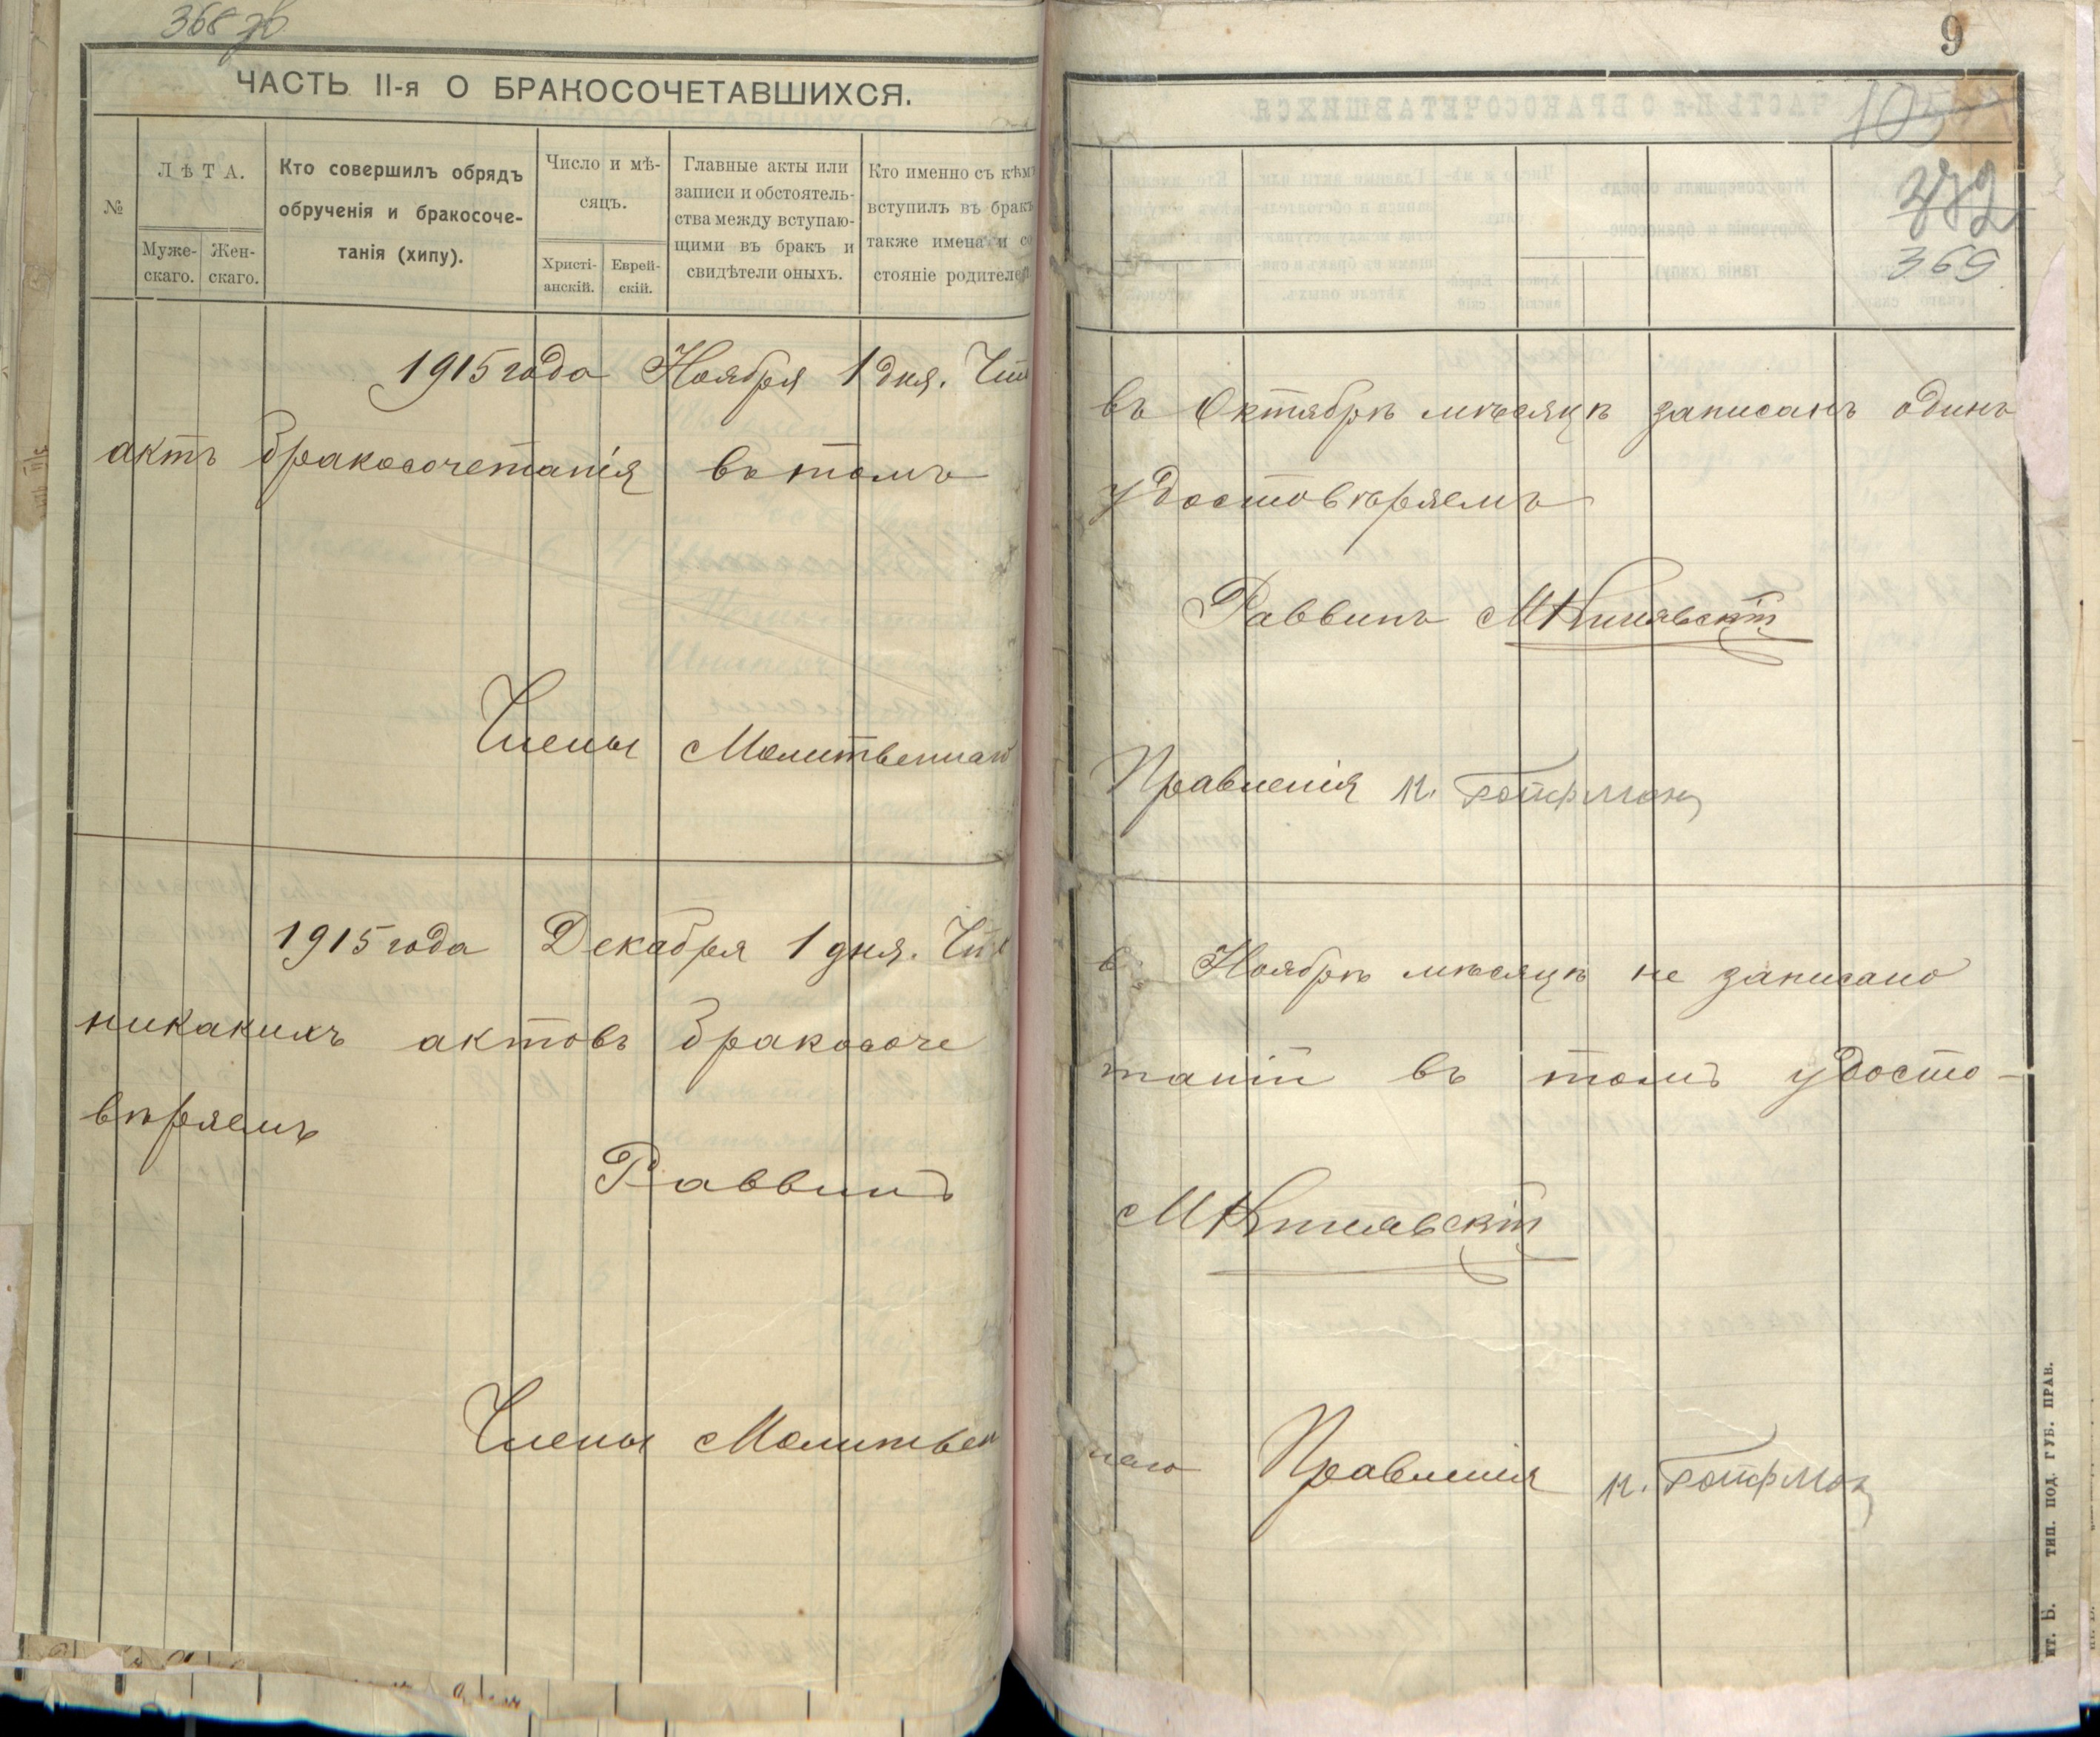 368 об
ЧАСТЬ II-я О БРАКОСОЧЕТАВШИХСЯ.
№
ЛѢТА.
Муже-
скаго.
Жен-
скаго.
Кто совершилъ обрядъ
обрученія и бракосоче-
танія (хипу).
Число и мѣ-
сяцъ.
Христі-
анскій.
Еврей-
скій.
Главные акты или
записи и обстоятель-
ства между вступаю-
щими въ бракъ и
свидѣтели оныхъ.
Кто именно съ кѣмъ
вступилъ въ бракъ
также имена и со
стояніе родителей
1915 года Ноября 1 дня. Что
актъ бракосочетанія въ томъ
Члены Молитвеннаго
1915 года Декабря 1 дня. Что
никакихъ актовъ бракосоче
вѣряемъ
Раввинъ
Члены Молитвен
9
105
372
369
въ Октябрѣ мѣсяцѣ записанъ одинъ
удостовѣряемъ
Раввинъ М
Правленія
в Ноябрѣ мѣсяцѣ не записано
таній въ томъ удосто-
М
наго Правленія
ит. Б. ТИП. ПОД. ГУБ. ПРАВ.